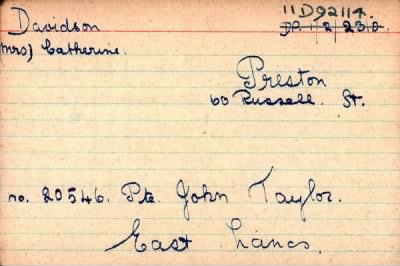 Davidson
11D92114.
DP. 1/2/230.
Mrs) Catherine.
Preston
60 Russell. St.
no. 20546. Pte. John Taylor.
East Lancs.